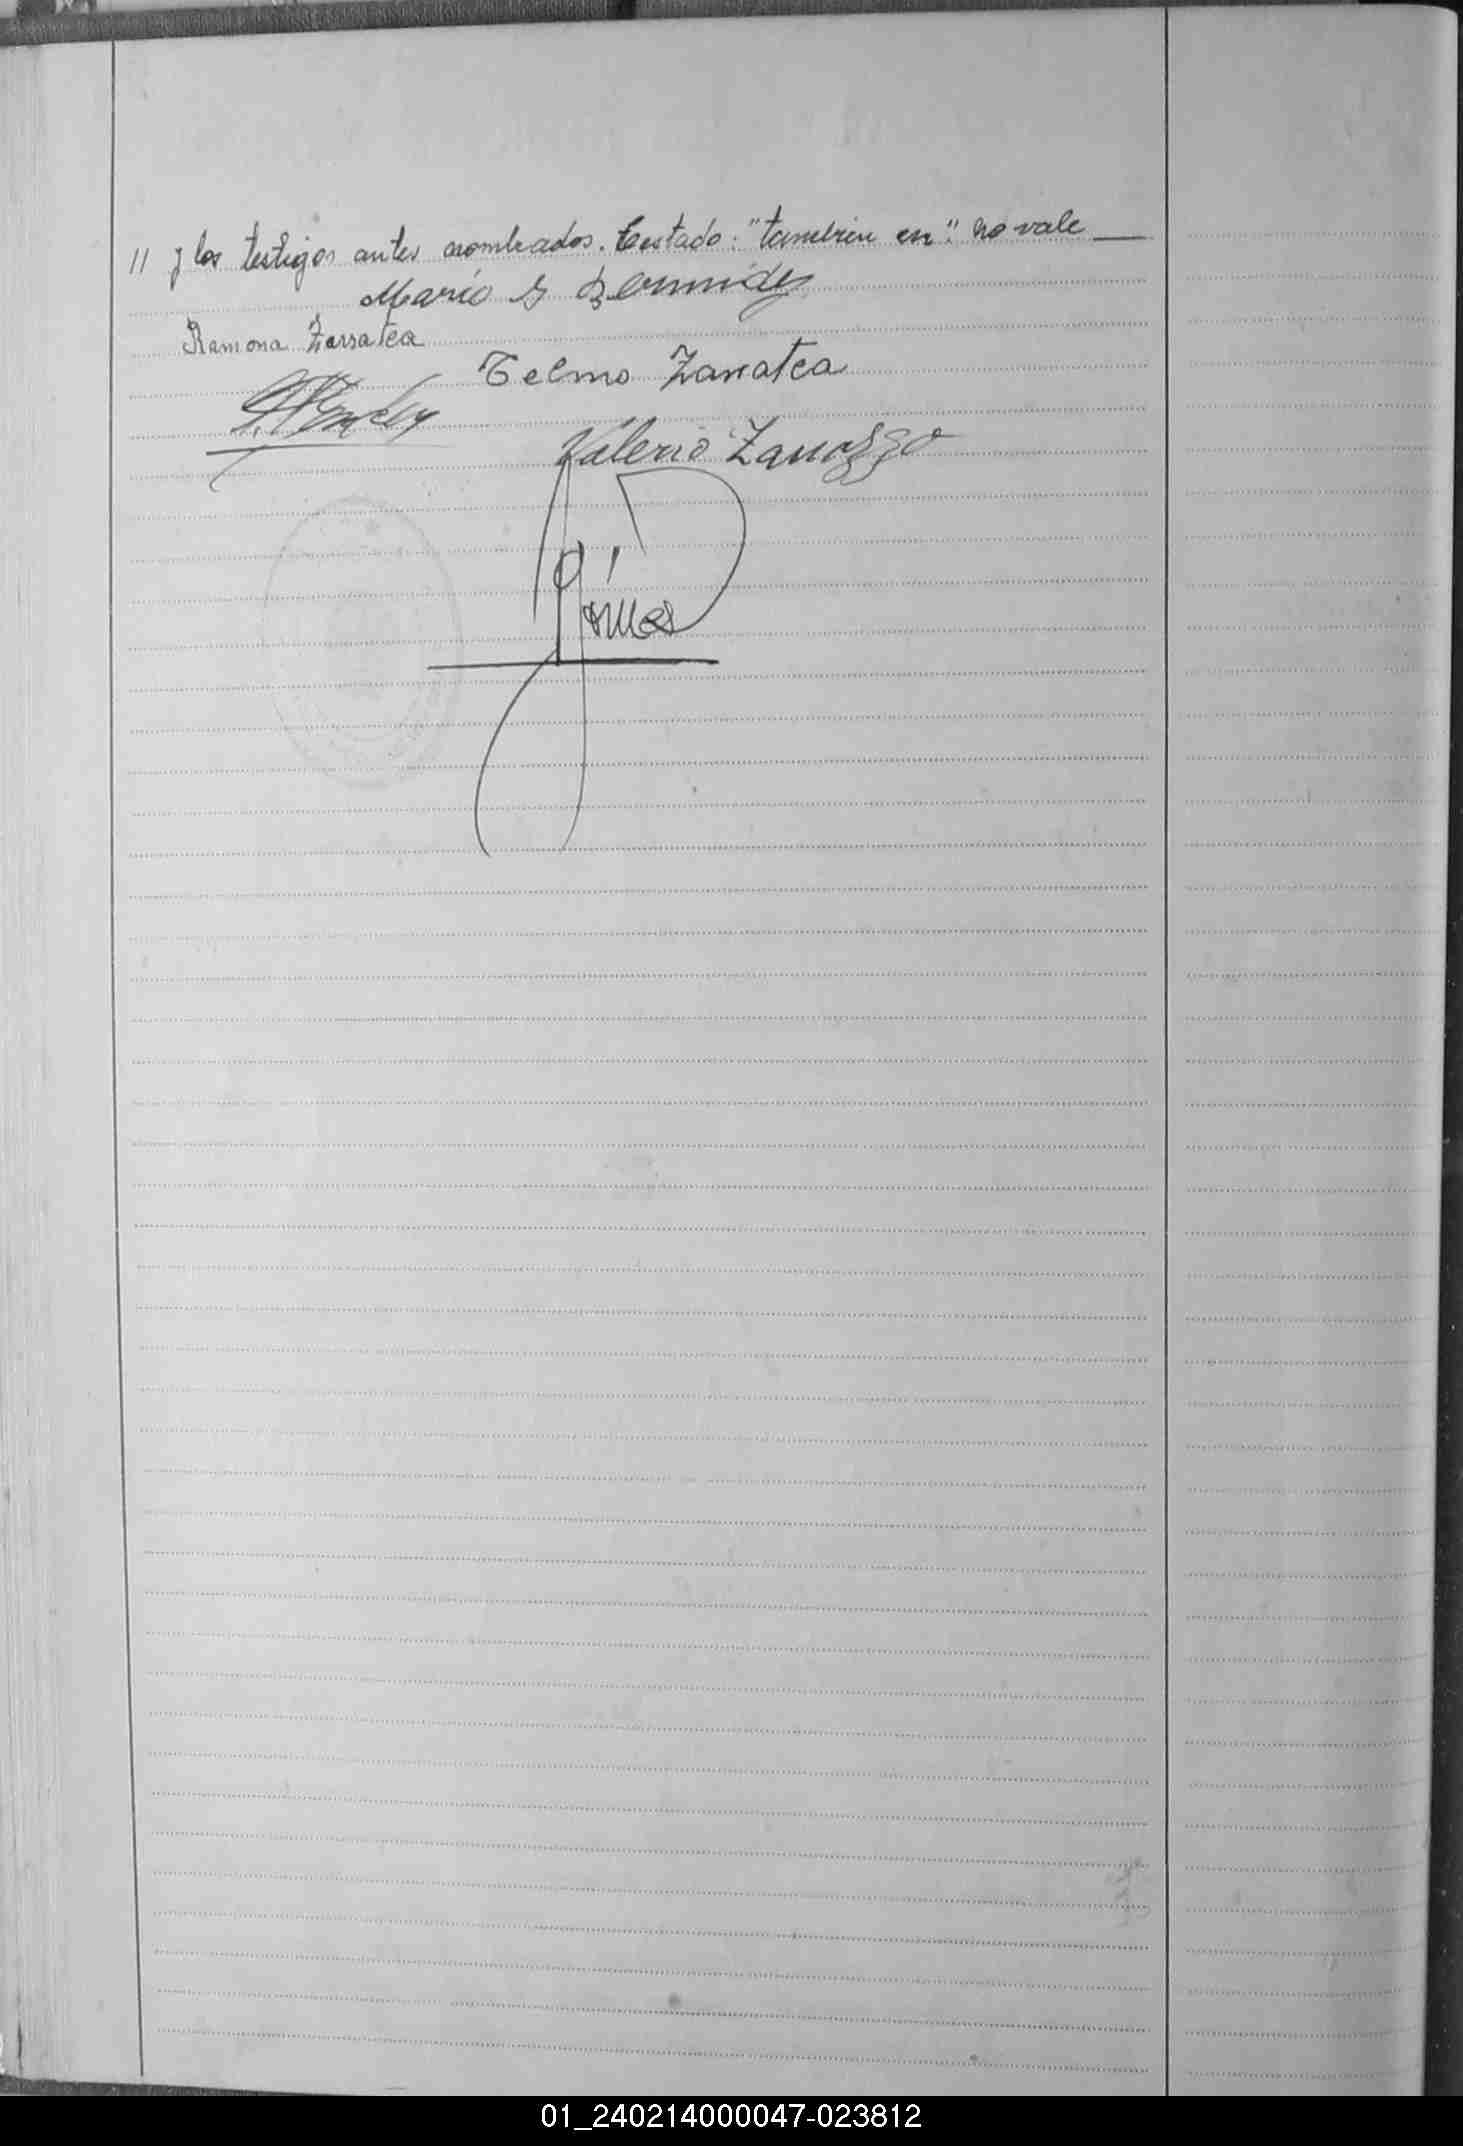 // y los testigos antes nombrados. Testado: "también en": no vale
Mario G Bermudez
Ramona Zarratea
Telmo Zarratea
Valerio Zarazzo
Gómez
01_240214000047-023812